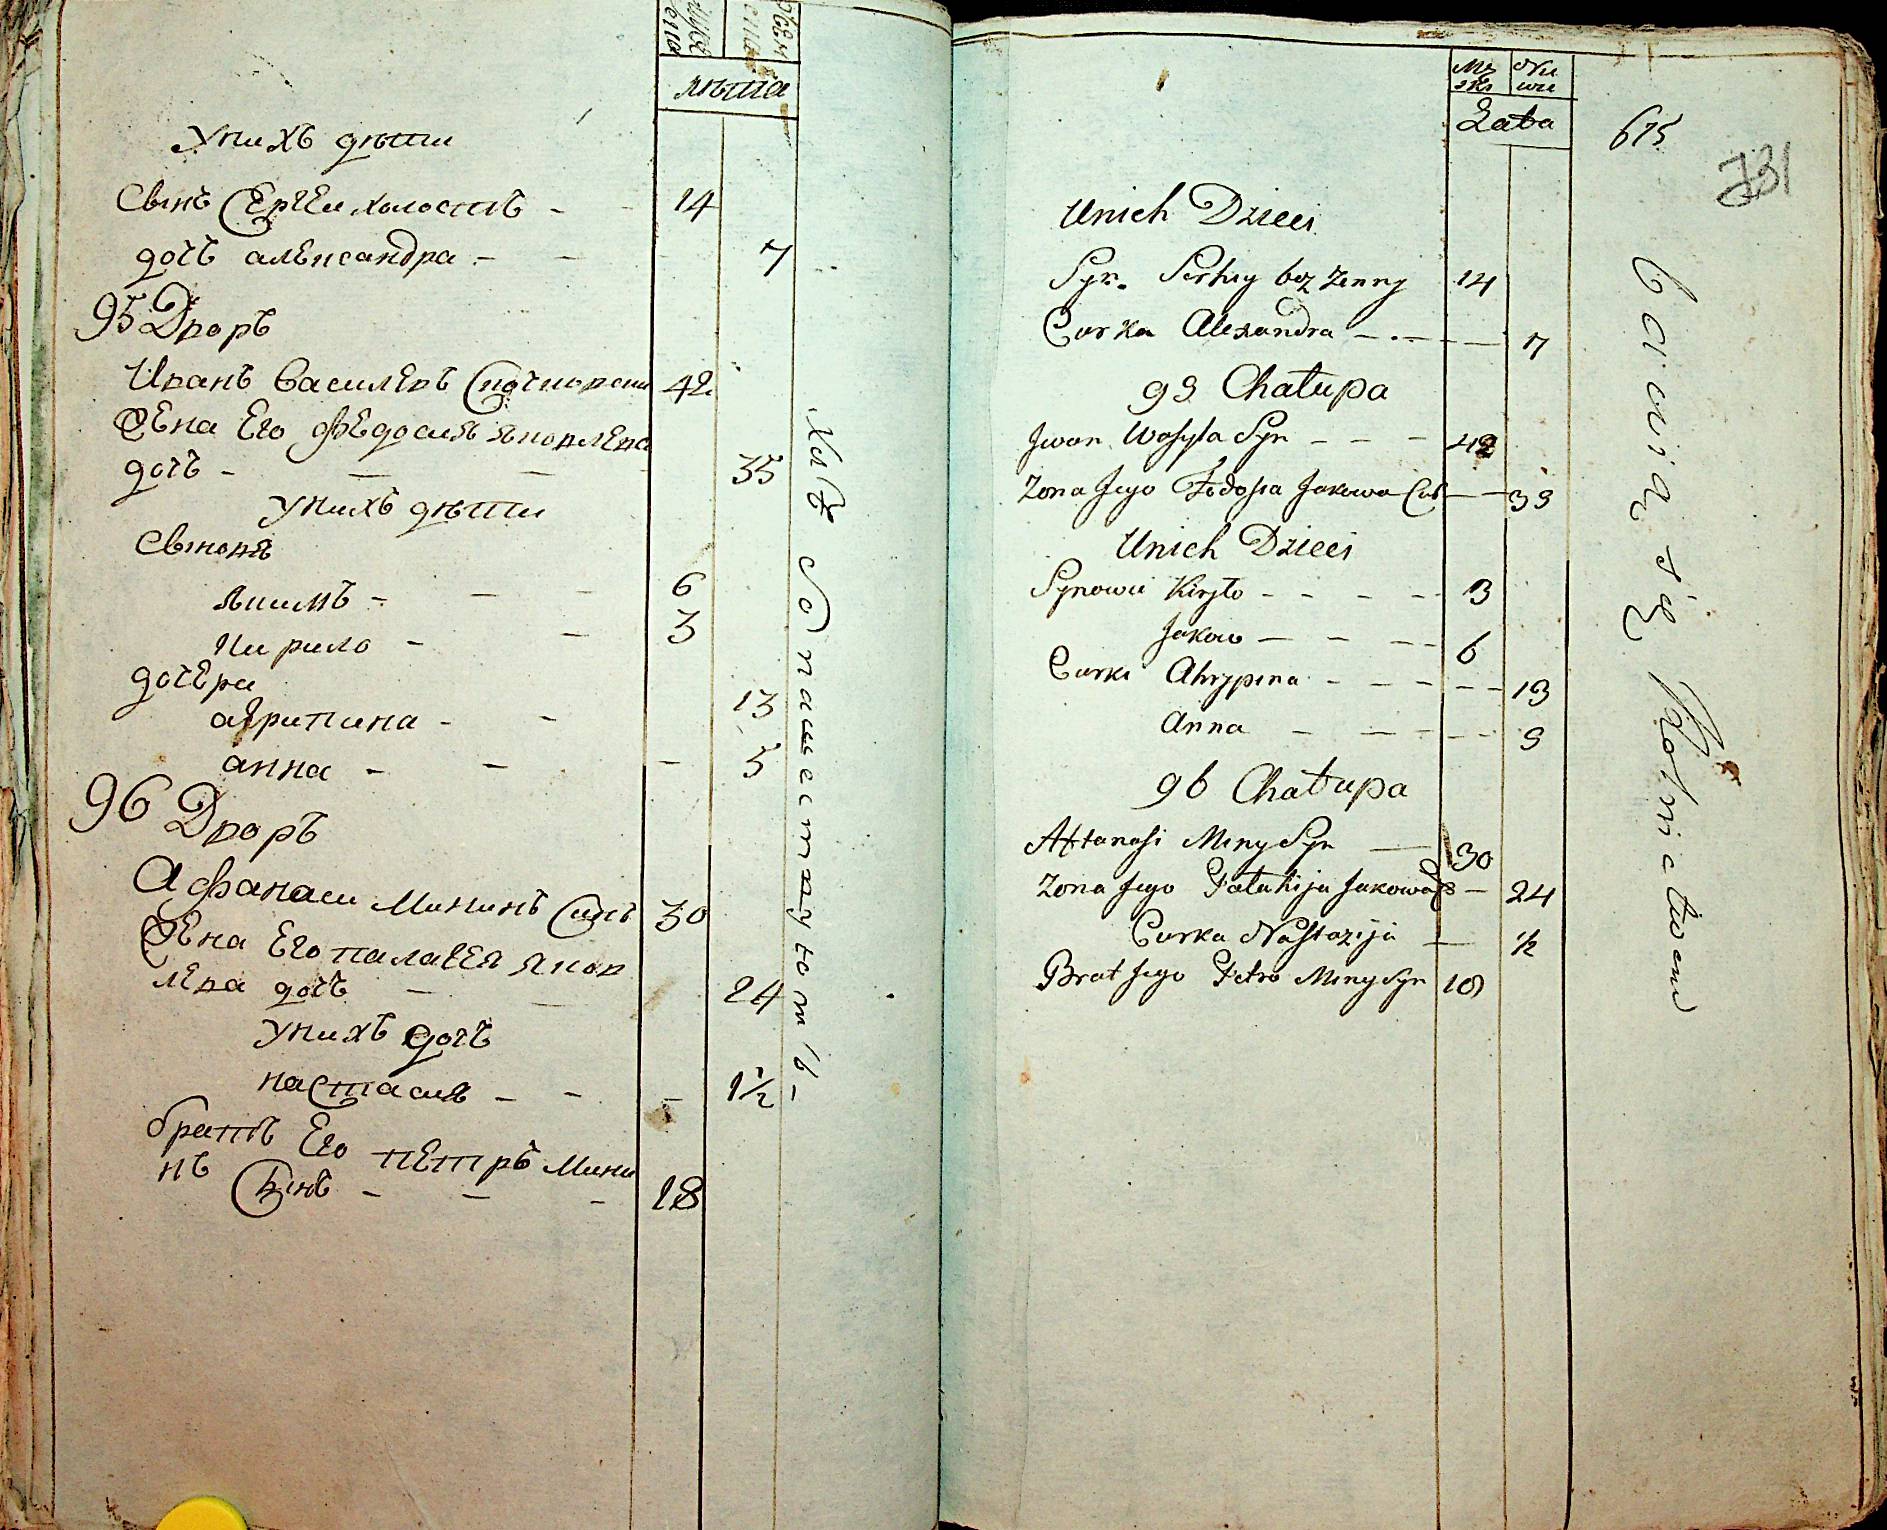 мужеска
женска
лѣта
У нихъ дѣти
Сынъ Сергеи холостъ - - 14
дочь александра - - 7
95 Дворъ
Иванъ Василевъ 42
Жена Его Федосия Яковлева
дочь - - - 35
У нихъ дѣти
Сыновя
якимъ - - - 6
Кирило - - 3
дочери
агрипина - - 13
анна - - - 5
96 Дворъ
Афанаси Мининъ Синъ 30
Жена Его палагея Яков
лева дочь - - 24
У нихъ дочь
настасия - - - 1½
братъ Его петръ Мини
нъ Сынъ - - - 18
Męski
Lata
675
731
Unich Dzieci
Syn. Serhiy bez Zenny 14
Curka Alexandra - - - 7
95 Chałupa
Jwan Wasyla Syn - - - 42
Zona Jego Fedosia Jakowa Cur - - 35
Unich Dzieci
Synowie Kiryło - - - - 3
Jakow - - - - 6
Curki Ahrypina - - - - - 13
Anna - - - - - 5
96 Chałupa
Aftanasi Miny Syn - 30
Zona Jego Pałahija Jakowa - 24
Curka Nastazija - ½
Brat Jego Petro Miny Syn 18